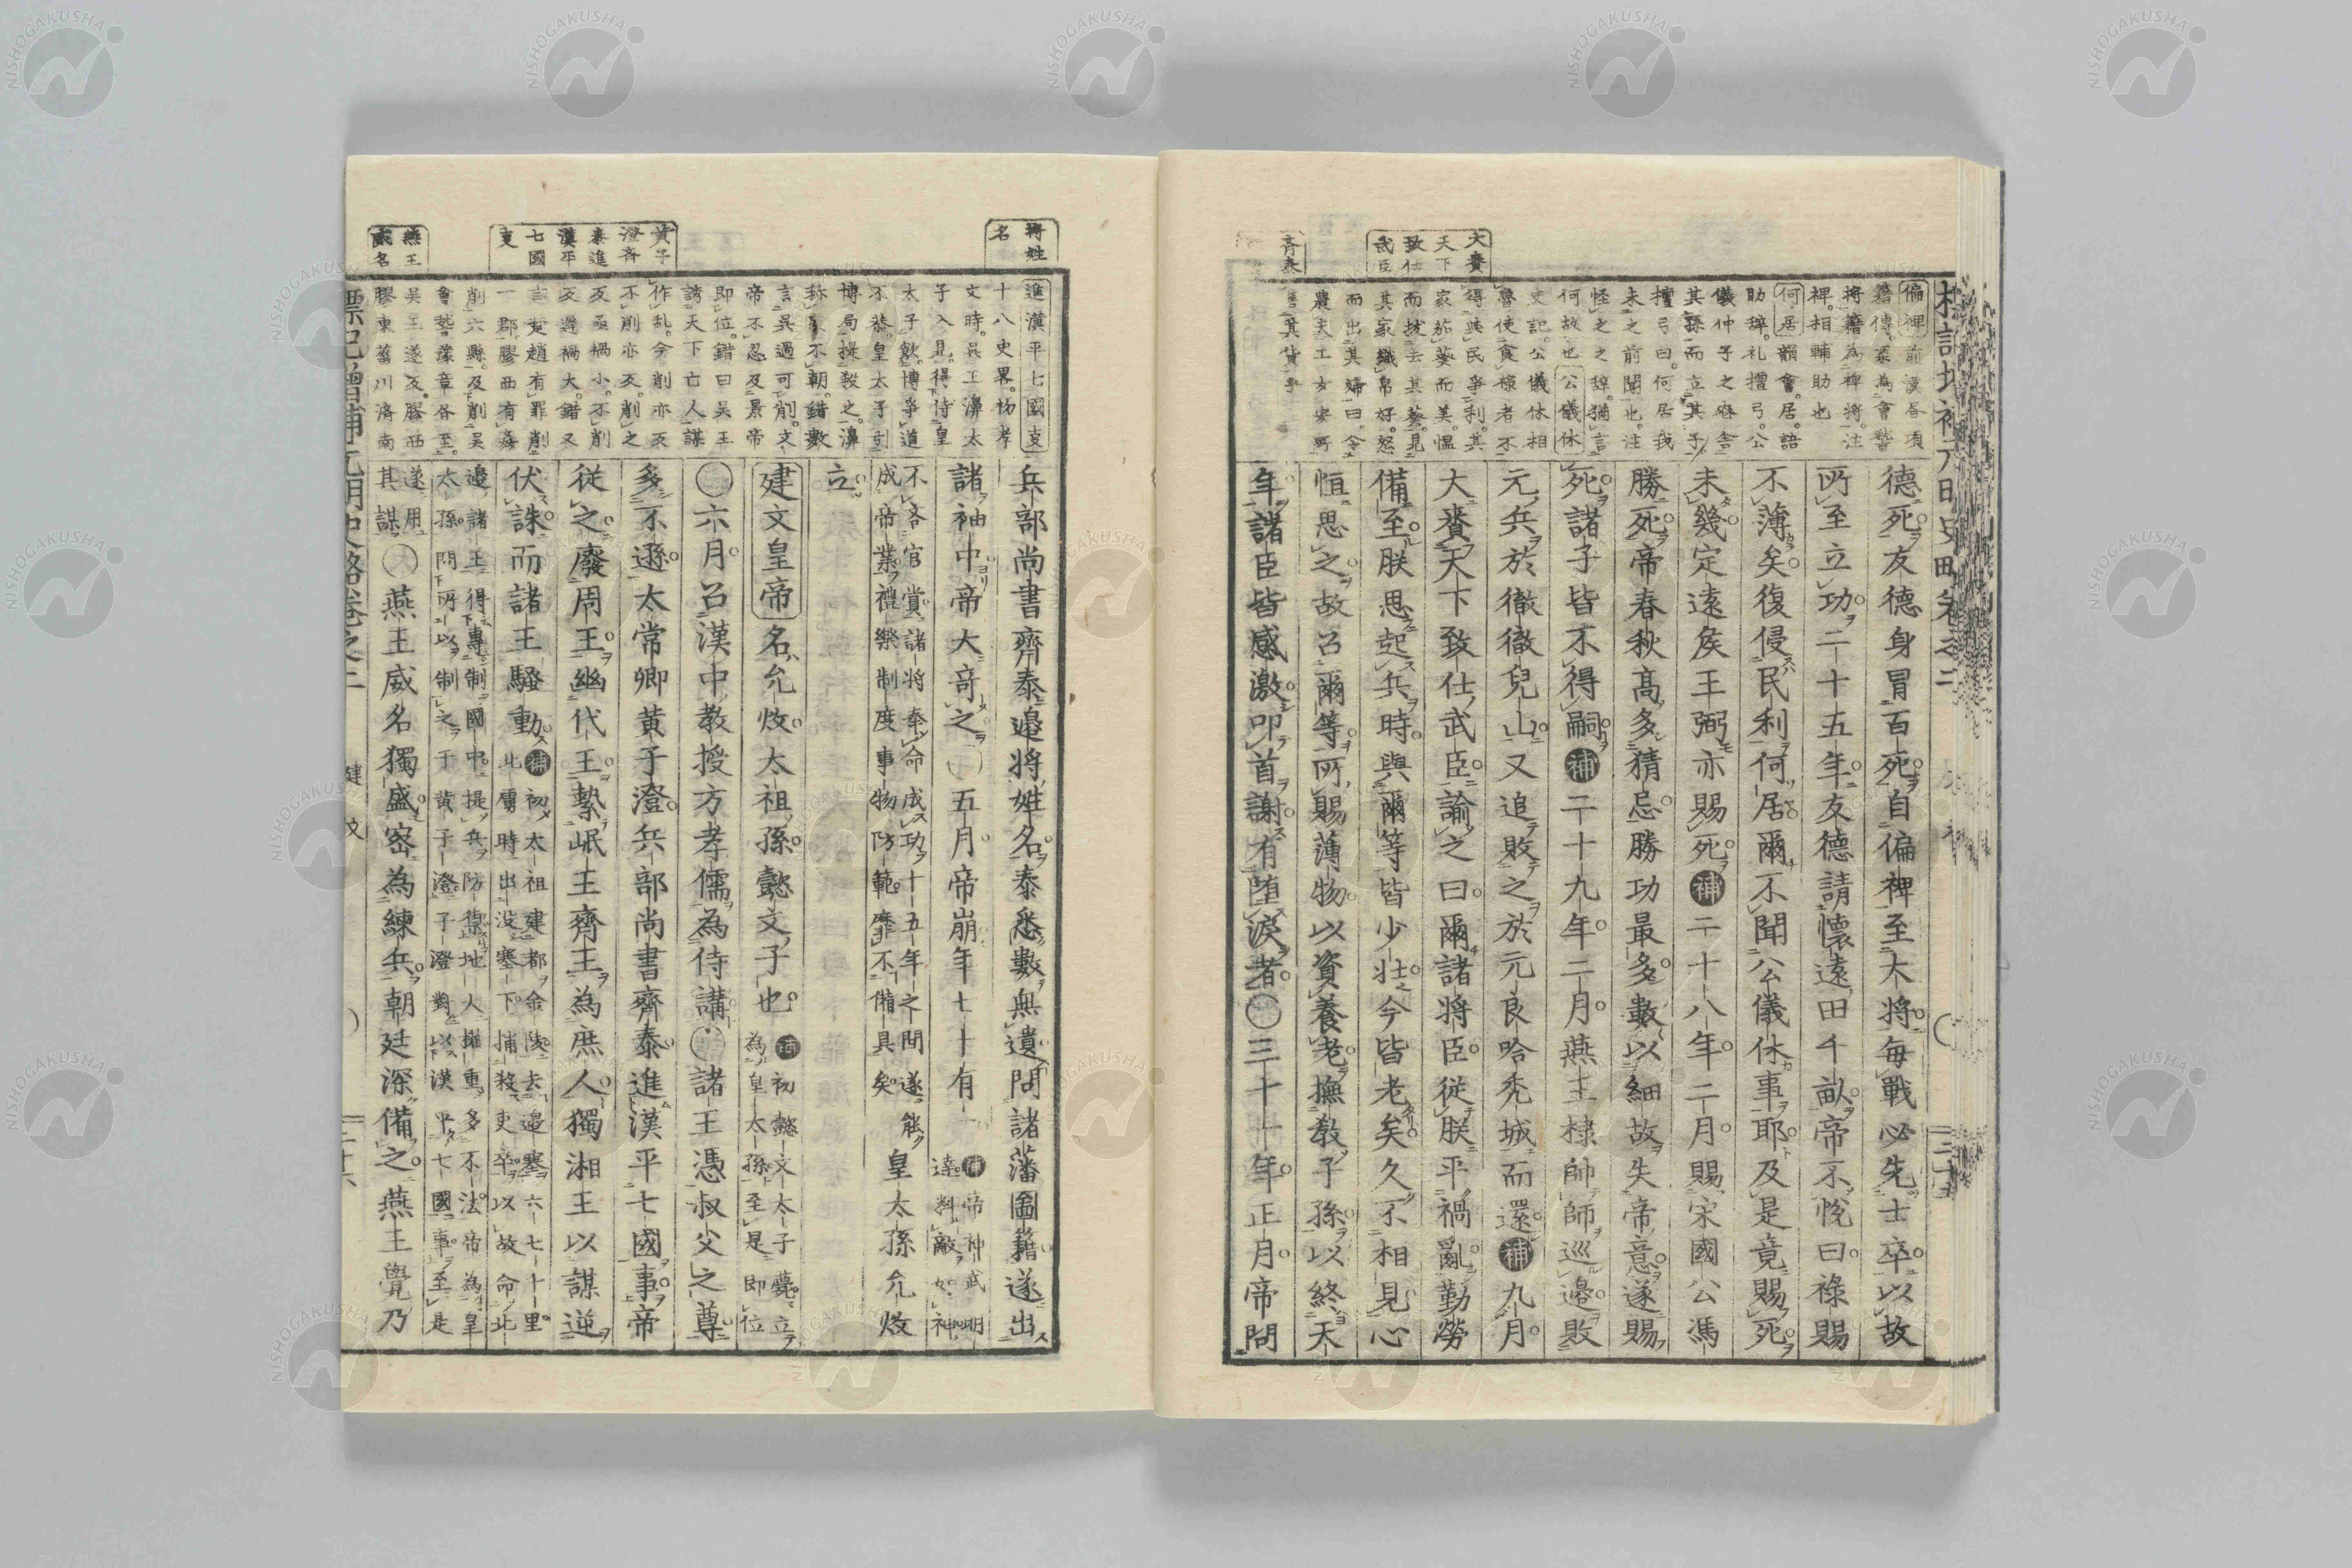 大賚
天下
致仕
武臣
齊泰
偏裨 前漢各項
籍傳。梁為會
將。籍為裨將。注
裨。相輔助也
何居 韻會。居。語
助辞。礼檀弓。公
儀仲子之喪舎
其孫而立其子。
檀弓曰。何居我
未之前聞也。注
怪之之辞。猶言
何故也 公儀休
史記。公儀休相
魯。使食禄者不
得與民爭利。其
家茹葵而美。慍
而拔去其葵。見
其家織帛好。怒
而出其婦曰。令
農夫工女安所
讐其貨乎
德死。友德身冒百死。自偏裨至大將。毎戰必先士卒。以故
所至立功。二十五年。友德請懷遠田千畝。帝不悅曰。祿賜
不薄矣。復侵民利何居。爾不聞公儀休事耶。及是竟賜死。
未幾定遠矦王弼亦賜死。補二十八年二月。賜宋國公馮
勝死。帝春秋高。多猜忌。勝功最多。數以細故失帝意。遂賜
死。諸子皆不得嗣。補二十九年二月。燕王棣帥師巡邊。敗
元兵於徹徹兒山。又追敗之於元良哈秃城而還。補九月。
大賚天下致仕武臣。諭之曰。爾諸將臣。從朕平禍亂。勤勞
備至。朕思起兵時。與爾等皆少壯。今皆老矣。久不相見。心
恒思之。故召爾等。所賜薄物。以資養老。撫敎子孫。以終天
年。諸臣皆感激叩首謝。有墮淚者。〇三十一年正月。帝問
將姓
名
黃子
澄齊
泰進
漢平
七國
事
燕王
威名
進漢平七國事
十八史畧。初孝
文時。吳王濞太
子入見。得侍皇
太子飮。博爭道
不恭。皇太子引
博局提殺之。濞
称疾不朝。錯數
言吳過可削。文
帝不忍。及景帝
即位。錯曰。吳王
誘天下亡人。謀
作乱。今削亦反
不削亦反。削之
反亟禍小。不削
反遲禍大。錯又
言楚趙有罪。削
一郡。膠西有姦
削六縣。及削吳
會稽豫章。各至。
吳王遂反。膠西
膠東菑川濟南
兵部尚書齊泰。邊將姓名。泰悉數無遺。問諸藩圖籍。遂出
諸袖中。帝大竒之。〇五月。帝崩。年七十有一 補帝神武明達。料敵如神。
不吝官賞。諸將奉命成功。十五年之間。遂能
成帝業。禮樂制度事物防範。靡不備具矣。皇太孫允炆
立。
建文皇帝 名允炆。太祖孫。懿文子也。補初懿文太子薨。立為皇太孫。至是即位
〇六月。召漢中教授方孝儒為侍講。〇諸王憑叔父之尊。
多不遜。太常卿黃子澄。兵部尚書齊泰。進漢平七國事。帝
從之。廢周王。幽代王。縶岷王齊王為庶人。獨湘王以謀逆
伏誅。而諸王騷動。補初太祖建都金陵。去邊塞六七十里。
北虜時出没塞下。捕殺吏卒。以故命北
邊諸王。得專制國中。提兵防禦。地大權重。多不法。帝為皇
太孫。問所以制之于黃子澄。子澄對以漢平七國事。至是
遂用
其謀〇燕王威名獨盛。密為練兵。朝廷深備之。燕王覺。乃